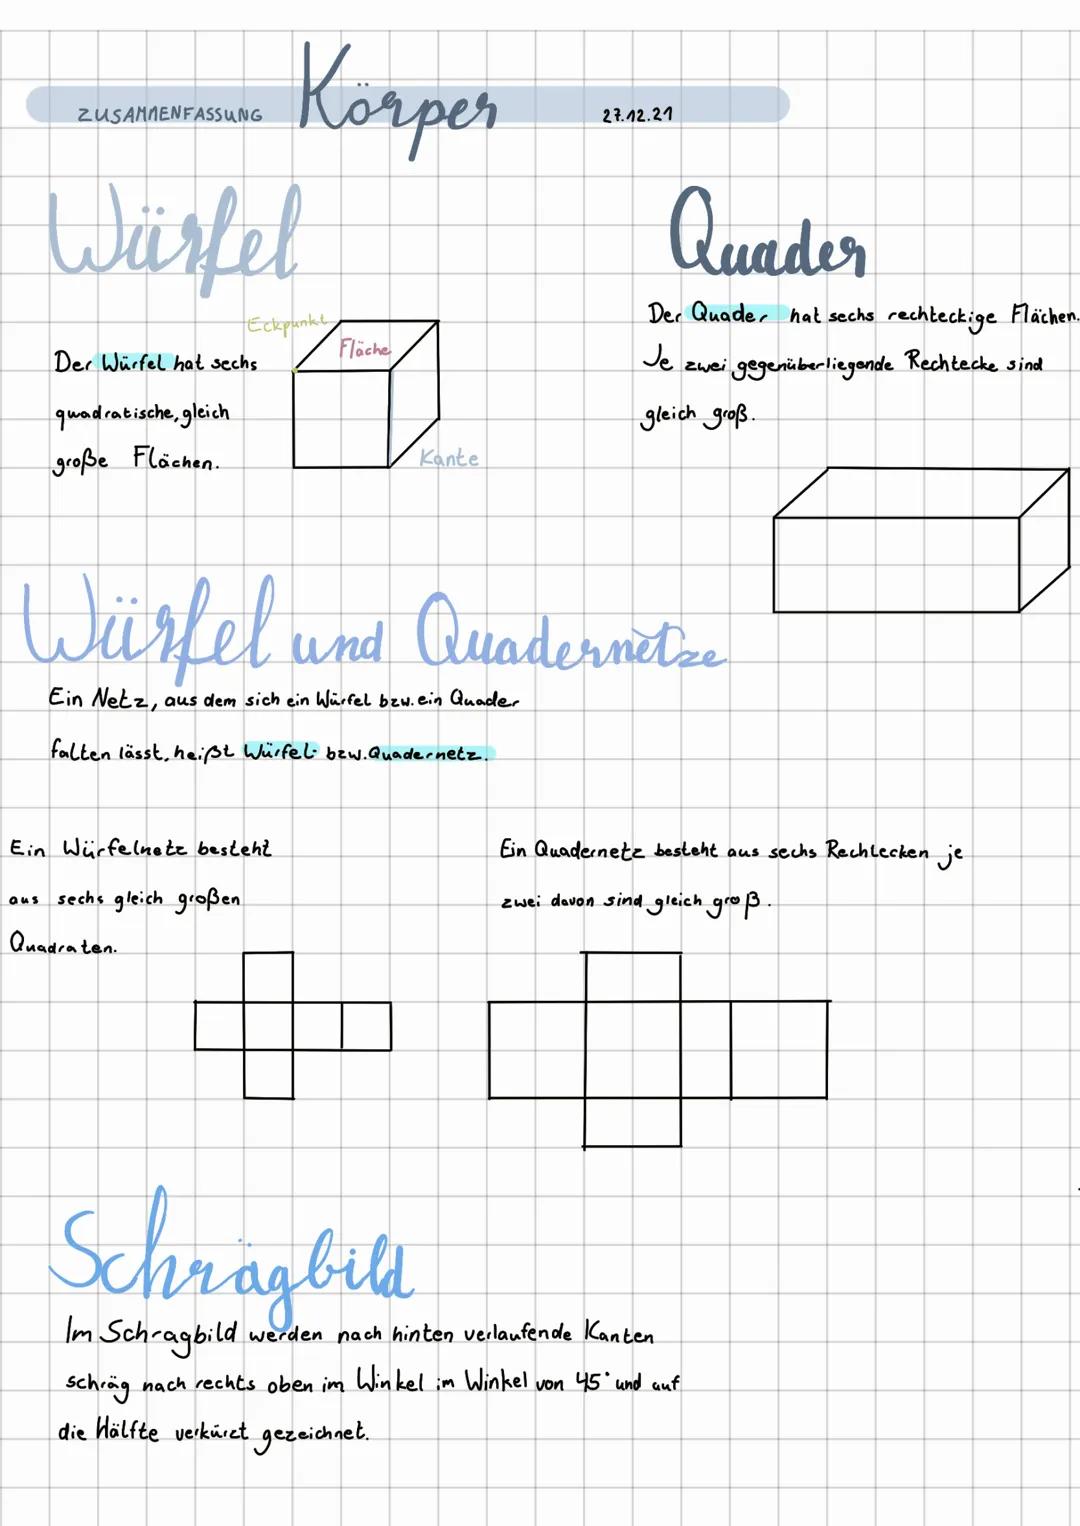 ZUSAMMENFASSUNG Körper 27.12.21
Würfel
Eckpunkt
Fläche
Kante
Der Würfel hat sechs
quadratische, gleich
große Flächen.
Quader
Der Quader hat sechs rechteckige Flächen.
Je zwei gegenüberliegende Rechtecke sind
gleich groß.
Würfel und Quadernetze
Ein Netz, aus dem sich ein Würfel bzw. ein Quader
falten lässt, heißt Würfel- bzw. Quadernetz.
Ein Würfelnetz besteht
aus sechs gleich großen
Quadraten.
Ein Quadernetz besteht aus sechs Rechtecken je
zwei davon sind gleich groß.
Schrägbild
Im Schragbild werden nach hinten verlaufende Kanten
schräg nach rechts oben im Winkel im Winkel von 45° und auf
die Hälfte verkürzt gezeichnet.